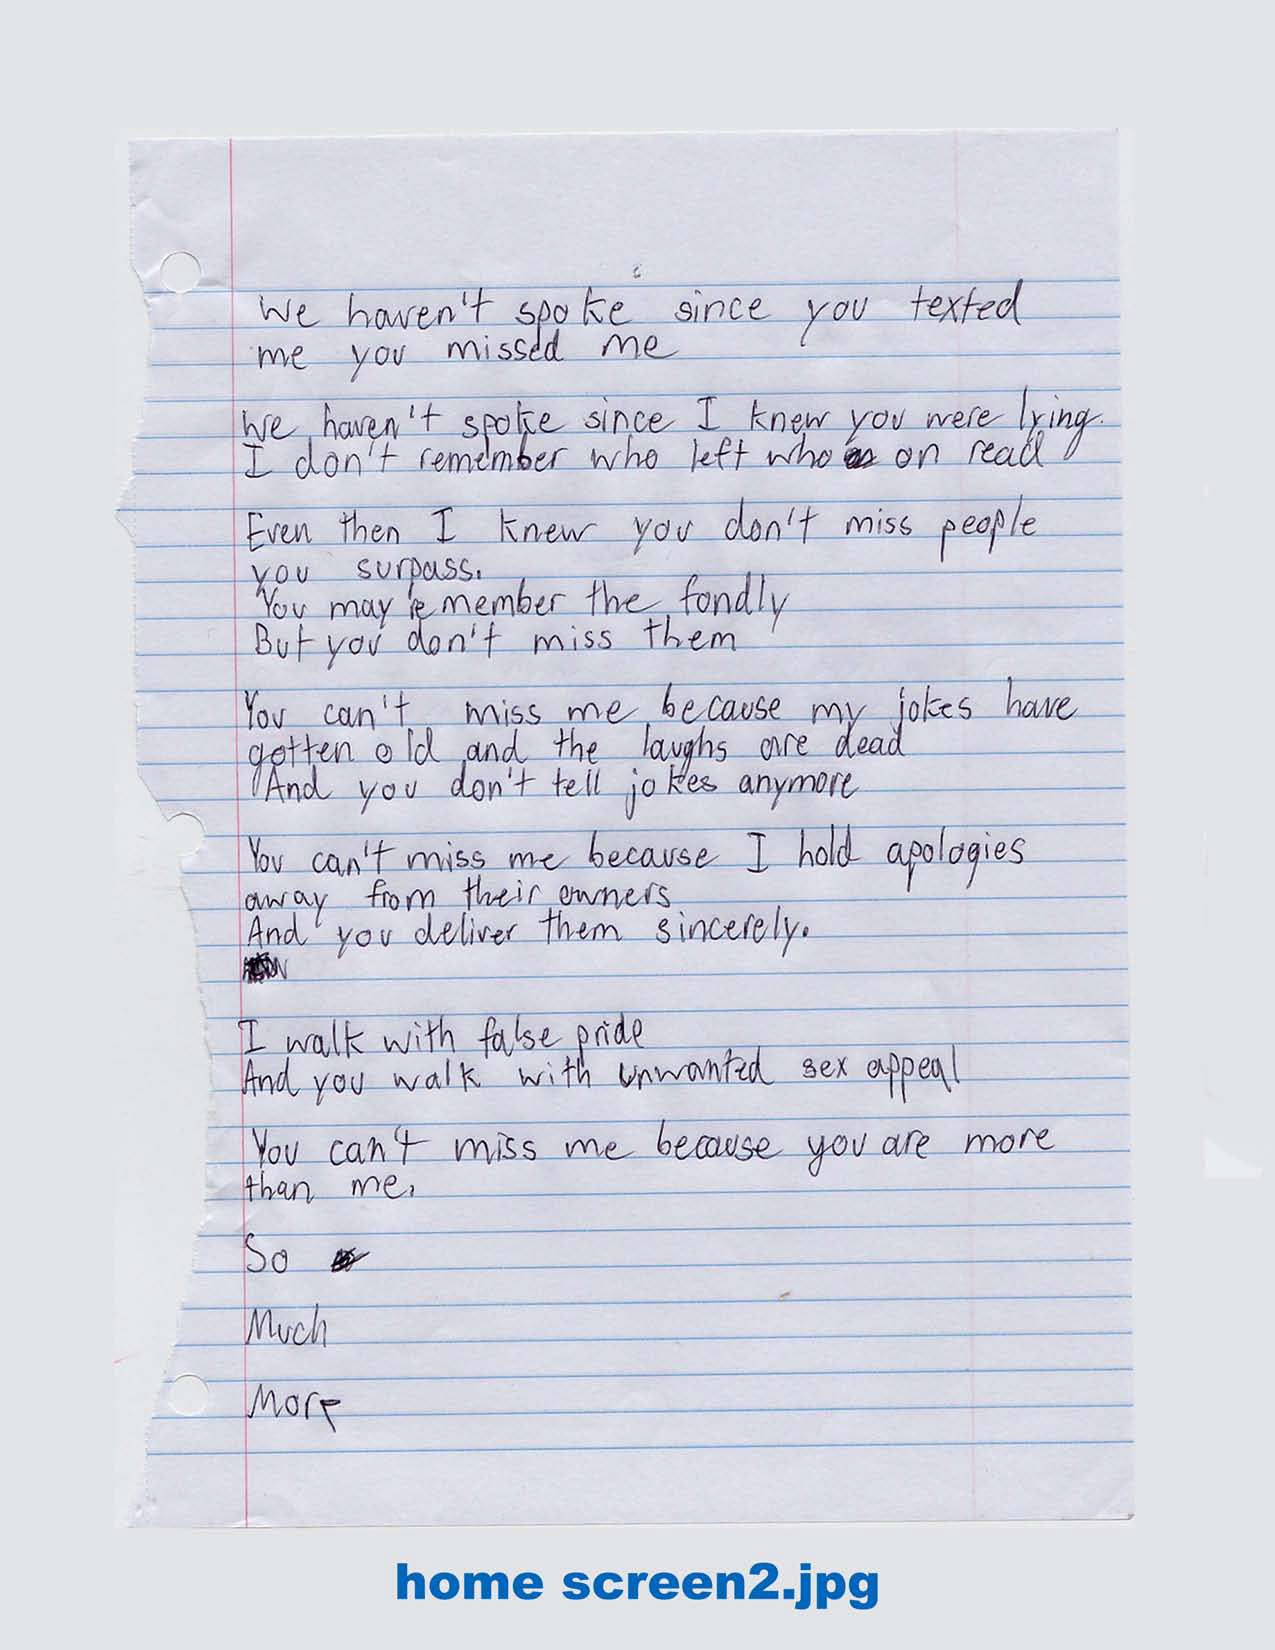 We haven't spoke since you texted
me you missed me
We haven't spoke since I knew you were lying.
I don't remember who left who on read
Even then I knew you don't miss people
you surpass.
You may remember the fondly
But you don't miss them
You can't miss me because my jokes have
gotten old and the laughs are dead
And you don't tell jokes anymore
You can't miss me because I hold apologies
away from their owners
And you deliver them sincerely.
I walk with false pride
And you walk with unwanted sex appeal
You can't miss me because you are more
than me.
So
Much
More
home screen2.jpg